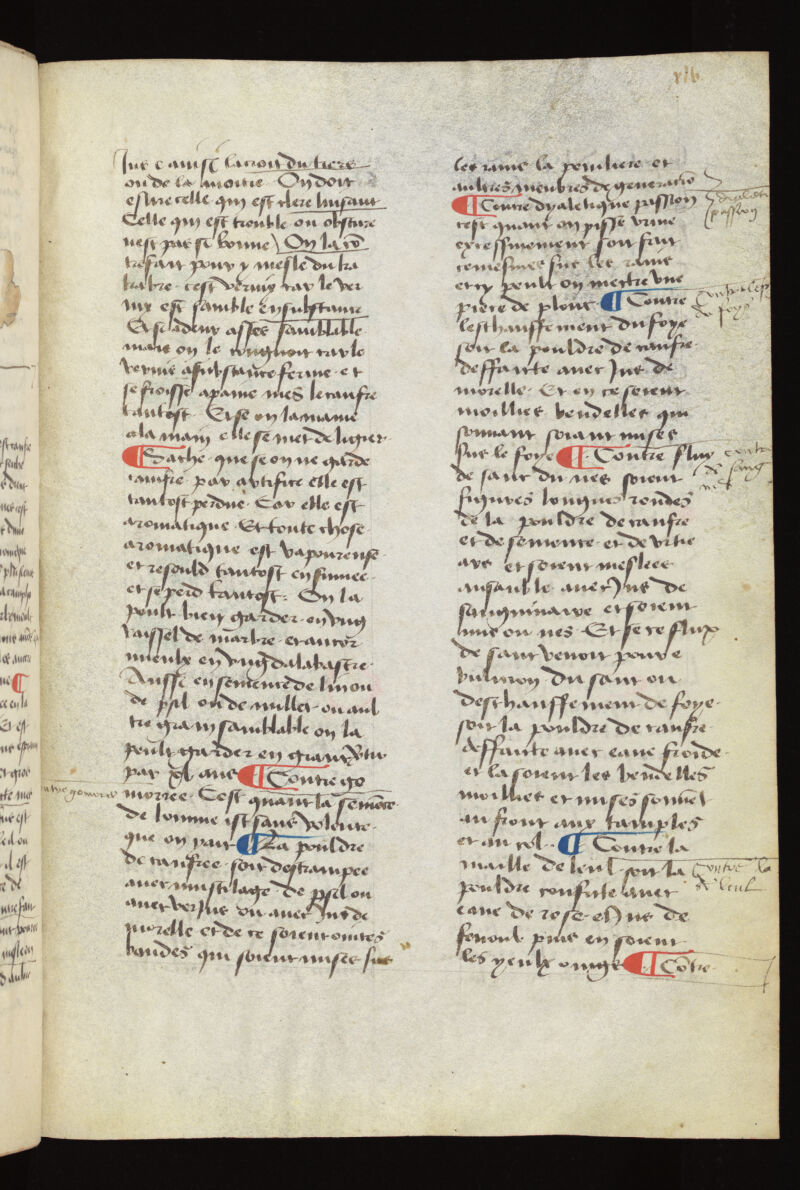 xlb
Jus & ainsi lacroit du tiers
ou de la moitie. On doit
eslire celle qui est clere luisant
Celle qui est trouble ou obscure
nest pas si bonne. On la cō
trefait pour y mesle du ka
kabre. cest vernix car le ver
nix est samble en substance
Et ladeur asses samblable
mais on le congnoit car le
vernis a substance ferme. et
se froisse a paine mes le canfre
tantost. Et se on la manie
a la main elle se met de ligier
¶ Sache que se on ne garde
canfre par artifice elle est
tantost perdue. Car elle est
aromatique. Et toute chose
aromatique est vapoureuse
et resould tantost en fumee.
et se perd tantost. On la
peult bien garder en ung
vaissel de marbre. et ancor
mieulx en ung dalabastre.
Aussi en semence de lin ou
de psil ou de millet ou aul
tre grain samblable on la
peult garder en grant vertu
par xl ans ¶ Contre go
morree. Cest quant la semēce
de lomme ist sans volente.
que on pait ¶ La pouldre
de canfree soit destrampee
avec muscilage de psil ou
avec verjus ou avec jus de
morelle et de ce soient ointes
bandes qui soient mises sus
contre gomoree
les rains la peniliere et
aultres menbres de generaciō
¶ Contre dyaletique passion
cest quant on pisse urine
expressiuement soit fait
ce mesmes sus les rains
et cy peult on mectre une
piece de plonc ¶ Contre
leschauffement du foye
soit la pouldre de canfre
deffaitte avec jus de
morelle. Et en ce soient
moillies bendelles qui
sonnant soiant mises
sus le foye ¶ Contre fluy
de sanc du nes soient
figures longues rondes
de la pouldre de canfre
et de semence et de urtie
ars et soient meslees
ansanble avec jus de
sanguinaire et soient
mis ou nes. Et se ce flux
de sanc venoit pour e
bulicion du sanc ou
deschauffement de foye
soit la pouldre de canfre
deffaicte avec eaue froide.
et la soient les bendelles
moillies et mises souvēt
au front aux tamples
et au col. ¶ Contre la
maille de leul soit la
pouldre confite avec
eaue de rose et jus de
fenoul puis en soient
les yeulx oingz ¶ Cōtre
dyaletic
passion
contre les
du foye
contre
de sang
nes
Contre la
de leul